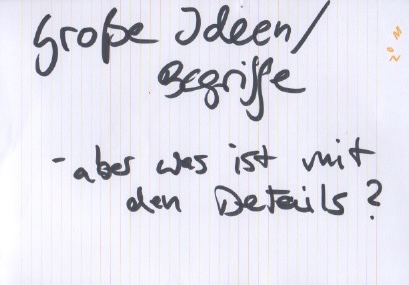 Große Ideen/
Begriffe
- aber was ist mit
den Details?